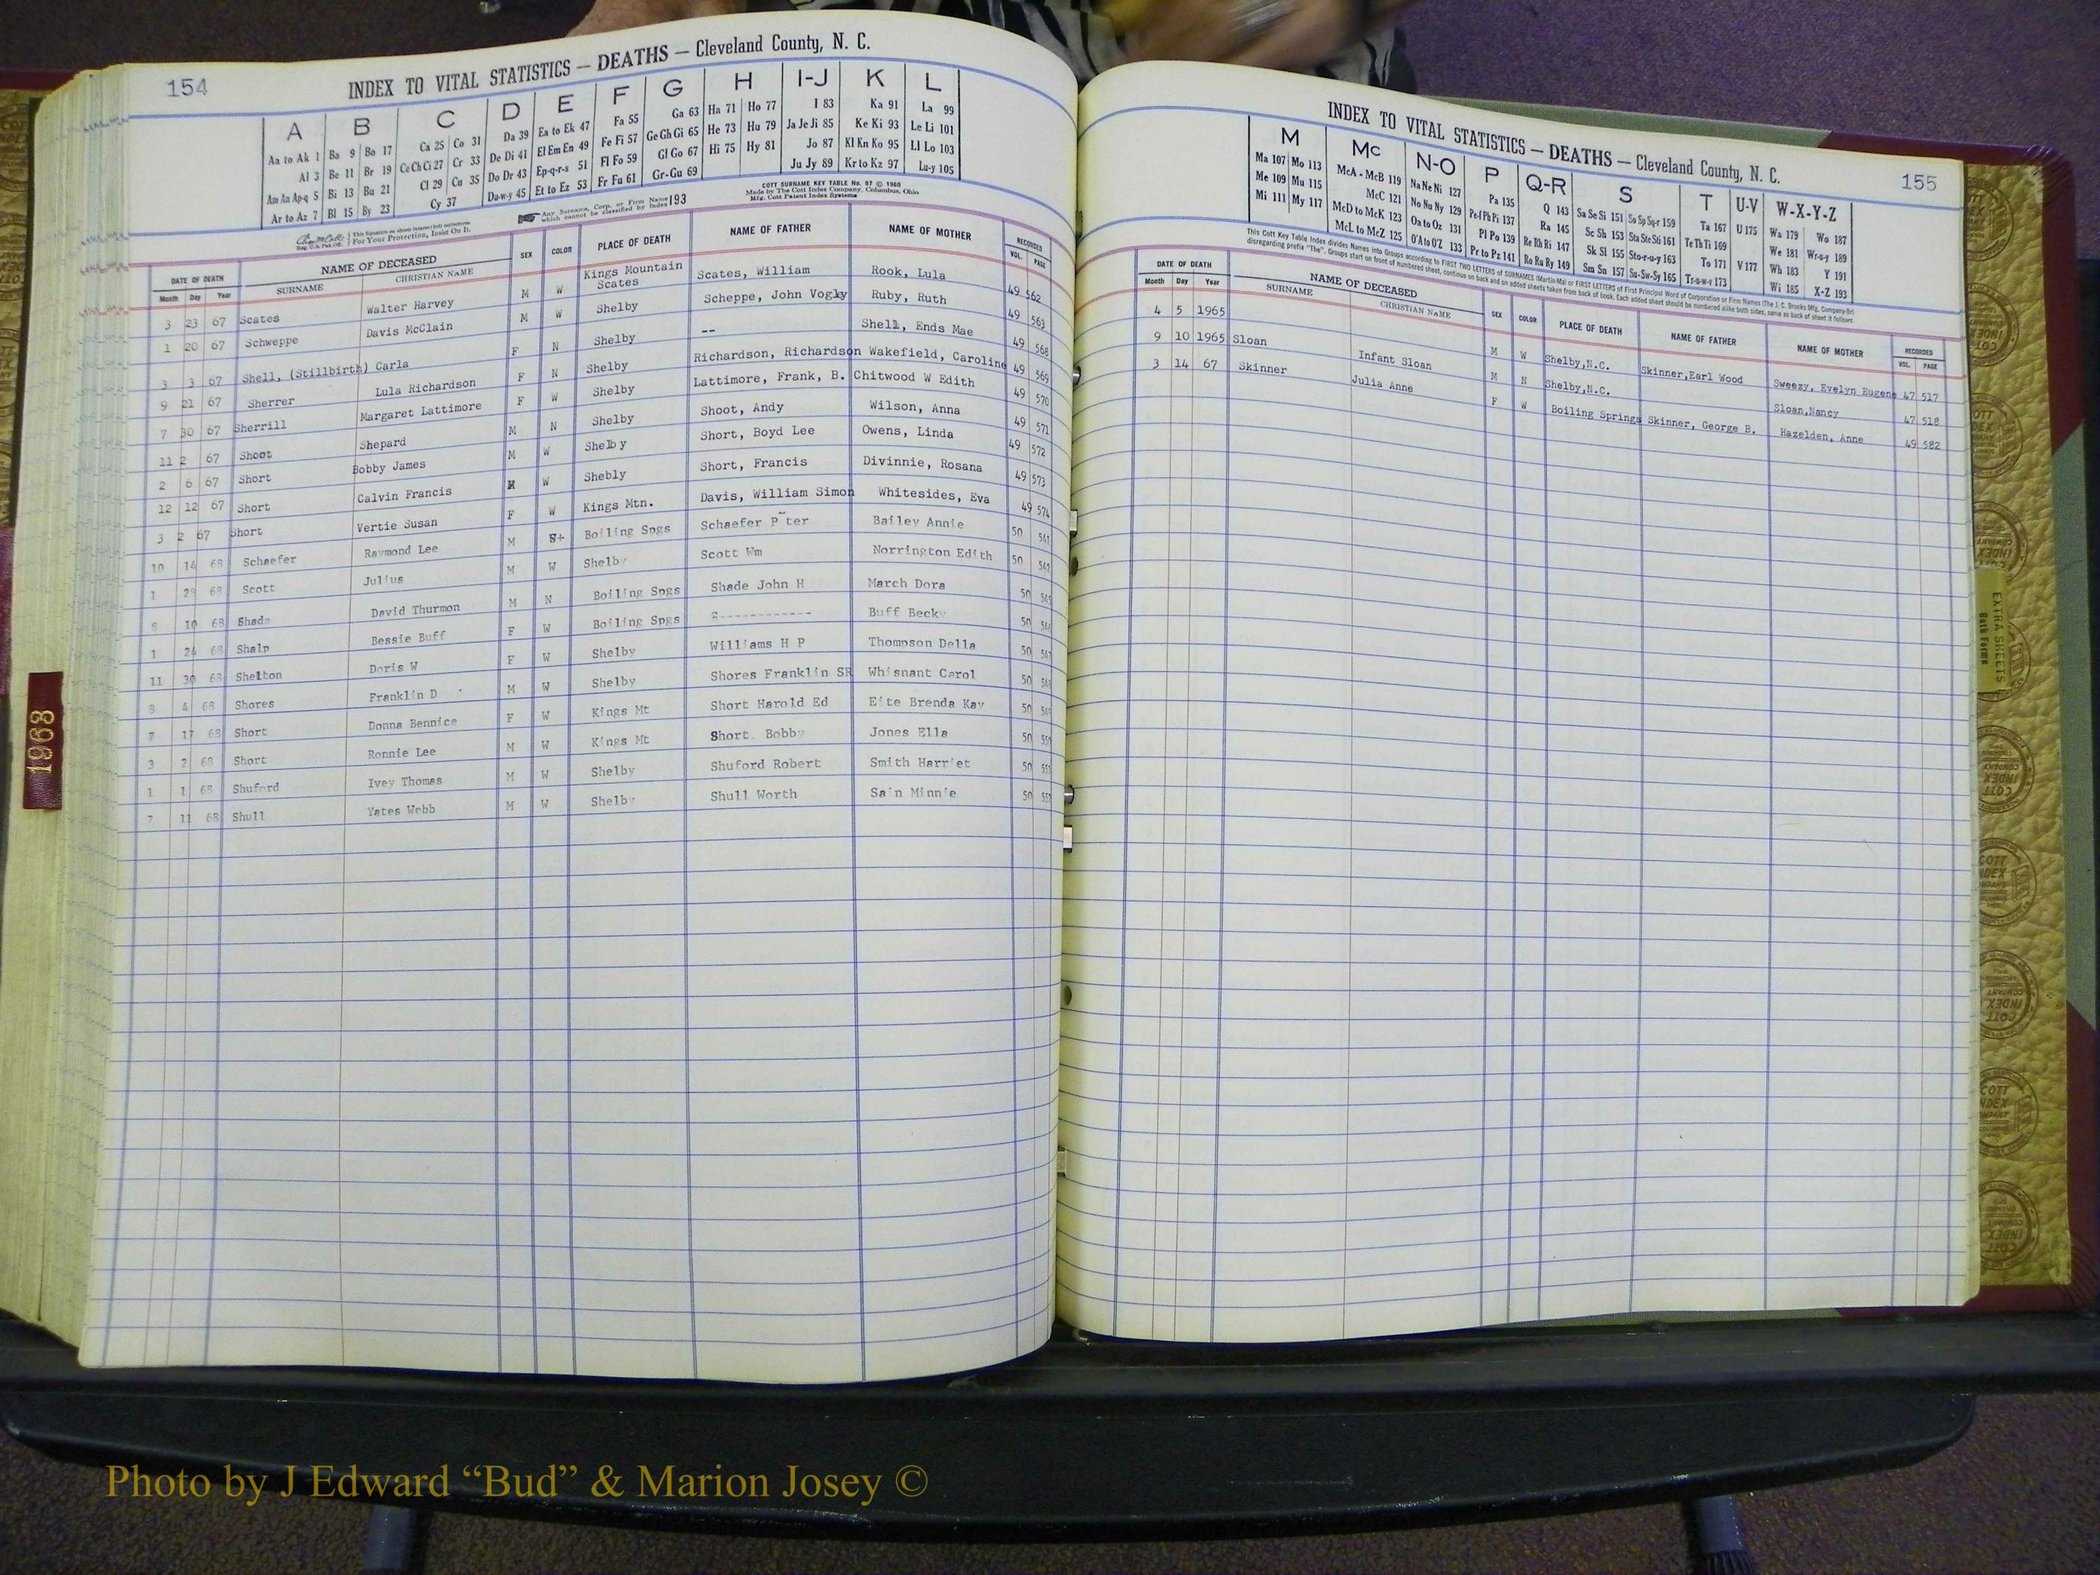 154
INDEX TO VITAL STATISTICS — DEATHS — Cleveland County, N. C.
A B C D E F G H I-J K L
Aa to Ak 1 Ba 9 Bo 17 Ca 25 Co 31 Da 39 Ea to Ek 47 Fa 55 Ga 63 Ha 71 Ho 77 I 83 Ka 91 La 99
Al 3 Be 11 Br 19 Ce Ch Ci 27 Cr 33 De Di 41 El Em En 49 Fe Fi 57 Ge Gh Gi 65 He 73 Hu 79 Ja Je Ji 85 Ke Ki 93 Le Li 101
Am An Ap-q 5 Bi 13 Bu 21 Cl 29 Cu 35 Do Dr 43 Ep-q-r-s 51 Fl Fo 59 Gl Go 67 Hi 75 Hy 81 Jo 87 Kl Kn Ko 95 Ll Lo 103
Ar to Az 7 Bl 15 By 23 Cy 37 Du-w-y 45 Et to Ez 53 Fr Fu 61 Gr-Gu 69 Ju Jy 89 Kr to Kz 97 Lu-y 105
For Your Protection, Insist On It.
Any Surname, Corp. or Firm Name which cannot be classified by Index 193
COTT SURNAME KEY TABLE No. 97 © 1960
Made by The Cott Index Company, Columbus, Ohio
Mfg. Cott Patent Index Systems
DATE OF DEATH NAME OF DECEASED SEX COLOR PLACE OF DEATH NAME OF FATHER NAME OF MOTHER RECORDED
Month Day Year SURNAME CHRISTIAN NAME VOL. PAGE
3 23 67 Scates Walter Harvey M W Kings Mountain Scates Scates, William Rook, Lula 49 562
1 20 67 Schweppe Davis McClain M W Shelby Scheppe, John Vogly Ruby, Ruth 49 563
3 3 67 Shell, (Stillbirth) Carla F N Shelby -- Shell, Ends Mae 49 568
9 21 67 Sherrer Lula Richardson F N Shelby Richardson, Richardson Wakefield, Caroline 49 569
7 30 67 Sherrill Margaret Lattimore F W Shelby Lattimore, Frank, B. Chitwood W Edith 49 570
11 2 67 Shoot Shepard M N Shelby Shoot, Andy Wilson, Anna 49 571
2 6 67 Short Bobby James M W Shelby Short, Boyd Lee Owens, Linda 49 572
12 12 67 Short Calvin Francis M W Shebly Short, Francis Divinnie, Rosana 49 573
3 2 67 Short Vertie Susan F W Kings Mtn. Davis, William Simon Whitesides, Eva 49 574
10 14 68 Schaefer Raymond Lee M Boiling Spgs Schaefer P ter Bailey Annie 50 541
1 29 68 Scott Julius M W Shelby Scott Wm Norrington Edith 50 542
8 10 68 Shade David Thurmon M N Boiling Spgs Shade John H March Dora 50
1 26 68 Shalp Bessie Buff F W Boiling Spgs ------------ Buff Becky 50
11 30 68 Shelton Doris W F W Shelby Williams H P Thompson Della 50
8 4 68 Shores Franklin D M W Shelby Shores Franklin SR Whisnant Carol 50
7 17 68 Short Donna Bennice F W Kings Mt Short Harold Ed Eite Brenda Kay 50
3 2 68 Short Ronnie Lee M W Kings Mt Short Bobby Jones Ella 50
1 1 68 Shuford Ivey Thomas M W Shelby Shuford Robert Smith Harriet 50
7 11 68 Shull Yates Webb M W Shelby Shull Worth Sain Minnie 50
1968
INDEX TO VITAL STATISTICS — DEATHS — Cleveland County, N. C.
155
M Mc N-O P Q-R S T U-V W-X-Y-Z
Ma 107 Mo 113 McA - McB 119 Na Ne Ni 127 Pa 135 Q 143 Sa Se Si 151 So Sp Sq-r 159 Ta 167 U 175 Wa 179 Wo 187
Me 109 Mu 115 McC 121 No Nu Ny 129 Pe-f Ph Pi 137 Ra 145 Sc Sh 153 Sta Ste Sti 161 Te Th Ti 169 We 181 Wr-u-y 189
Mi 111 My 117 McD to McK 123 Oa to Oz 131 Pl Po 139 Re Rh Ri 147 Sk Sl 155 Sto-r-u-y 163 To 171 V 177 Wh 183 Y 191
McL to McZ 125 O'A to O'Z 133 Pr to Pz 141 Ro Ru Ry 149 Sm Sn 157 Su-Sw-Sy 165 Tr-u-w-y 173 Wi 185 X-Z 193
This Cott Key Table Index divides Names into Groups according to FIRST TWO LETTERS of SURNAMES (Martin-Ma) or FIRST LETTERS of First Principal Word of Corporation or Firm Names (The J. C. Brooks Mfg. Company-Br)
disregarding prefix "The". Groups start on front of numbered sheet, continue on back and on added sheets taken from back of book. Each added sheet should be numbered alike both sides, same as back of sheet it follows.
DATE OF DEATH NAME OF DECEASED SEX COLOR PLACE OF DEATH NAME OF FATHER NAME OF MOTHER RECORDED
Month Day Year SURNAME CHRISTIAN NAME VOL. PAGE
4 5 1965 M W Shelby,N.C. Skinner,Earl Wood Sweezy, Evelyn Eugene 47 517
9 10 1965 Sloan Infant Sloan M N Shelby,N.C. Sloan,Nancy 47 518
3 14 67 Skinner Julia Anne F W Boiling Springs Skinner, George B. Hazelden, Anne 49 582
EXTRA SHEETS
Both Forms
COTT INDEX COMPANY
Photo by J Edward “Bud” & Marion Josey ©